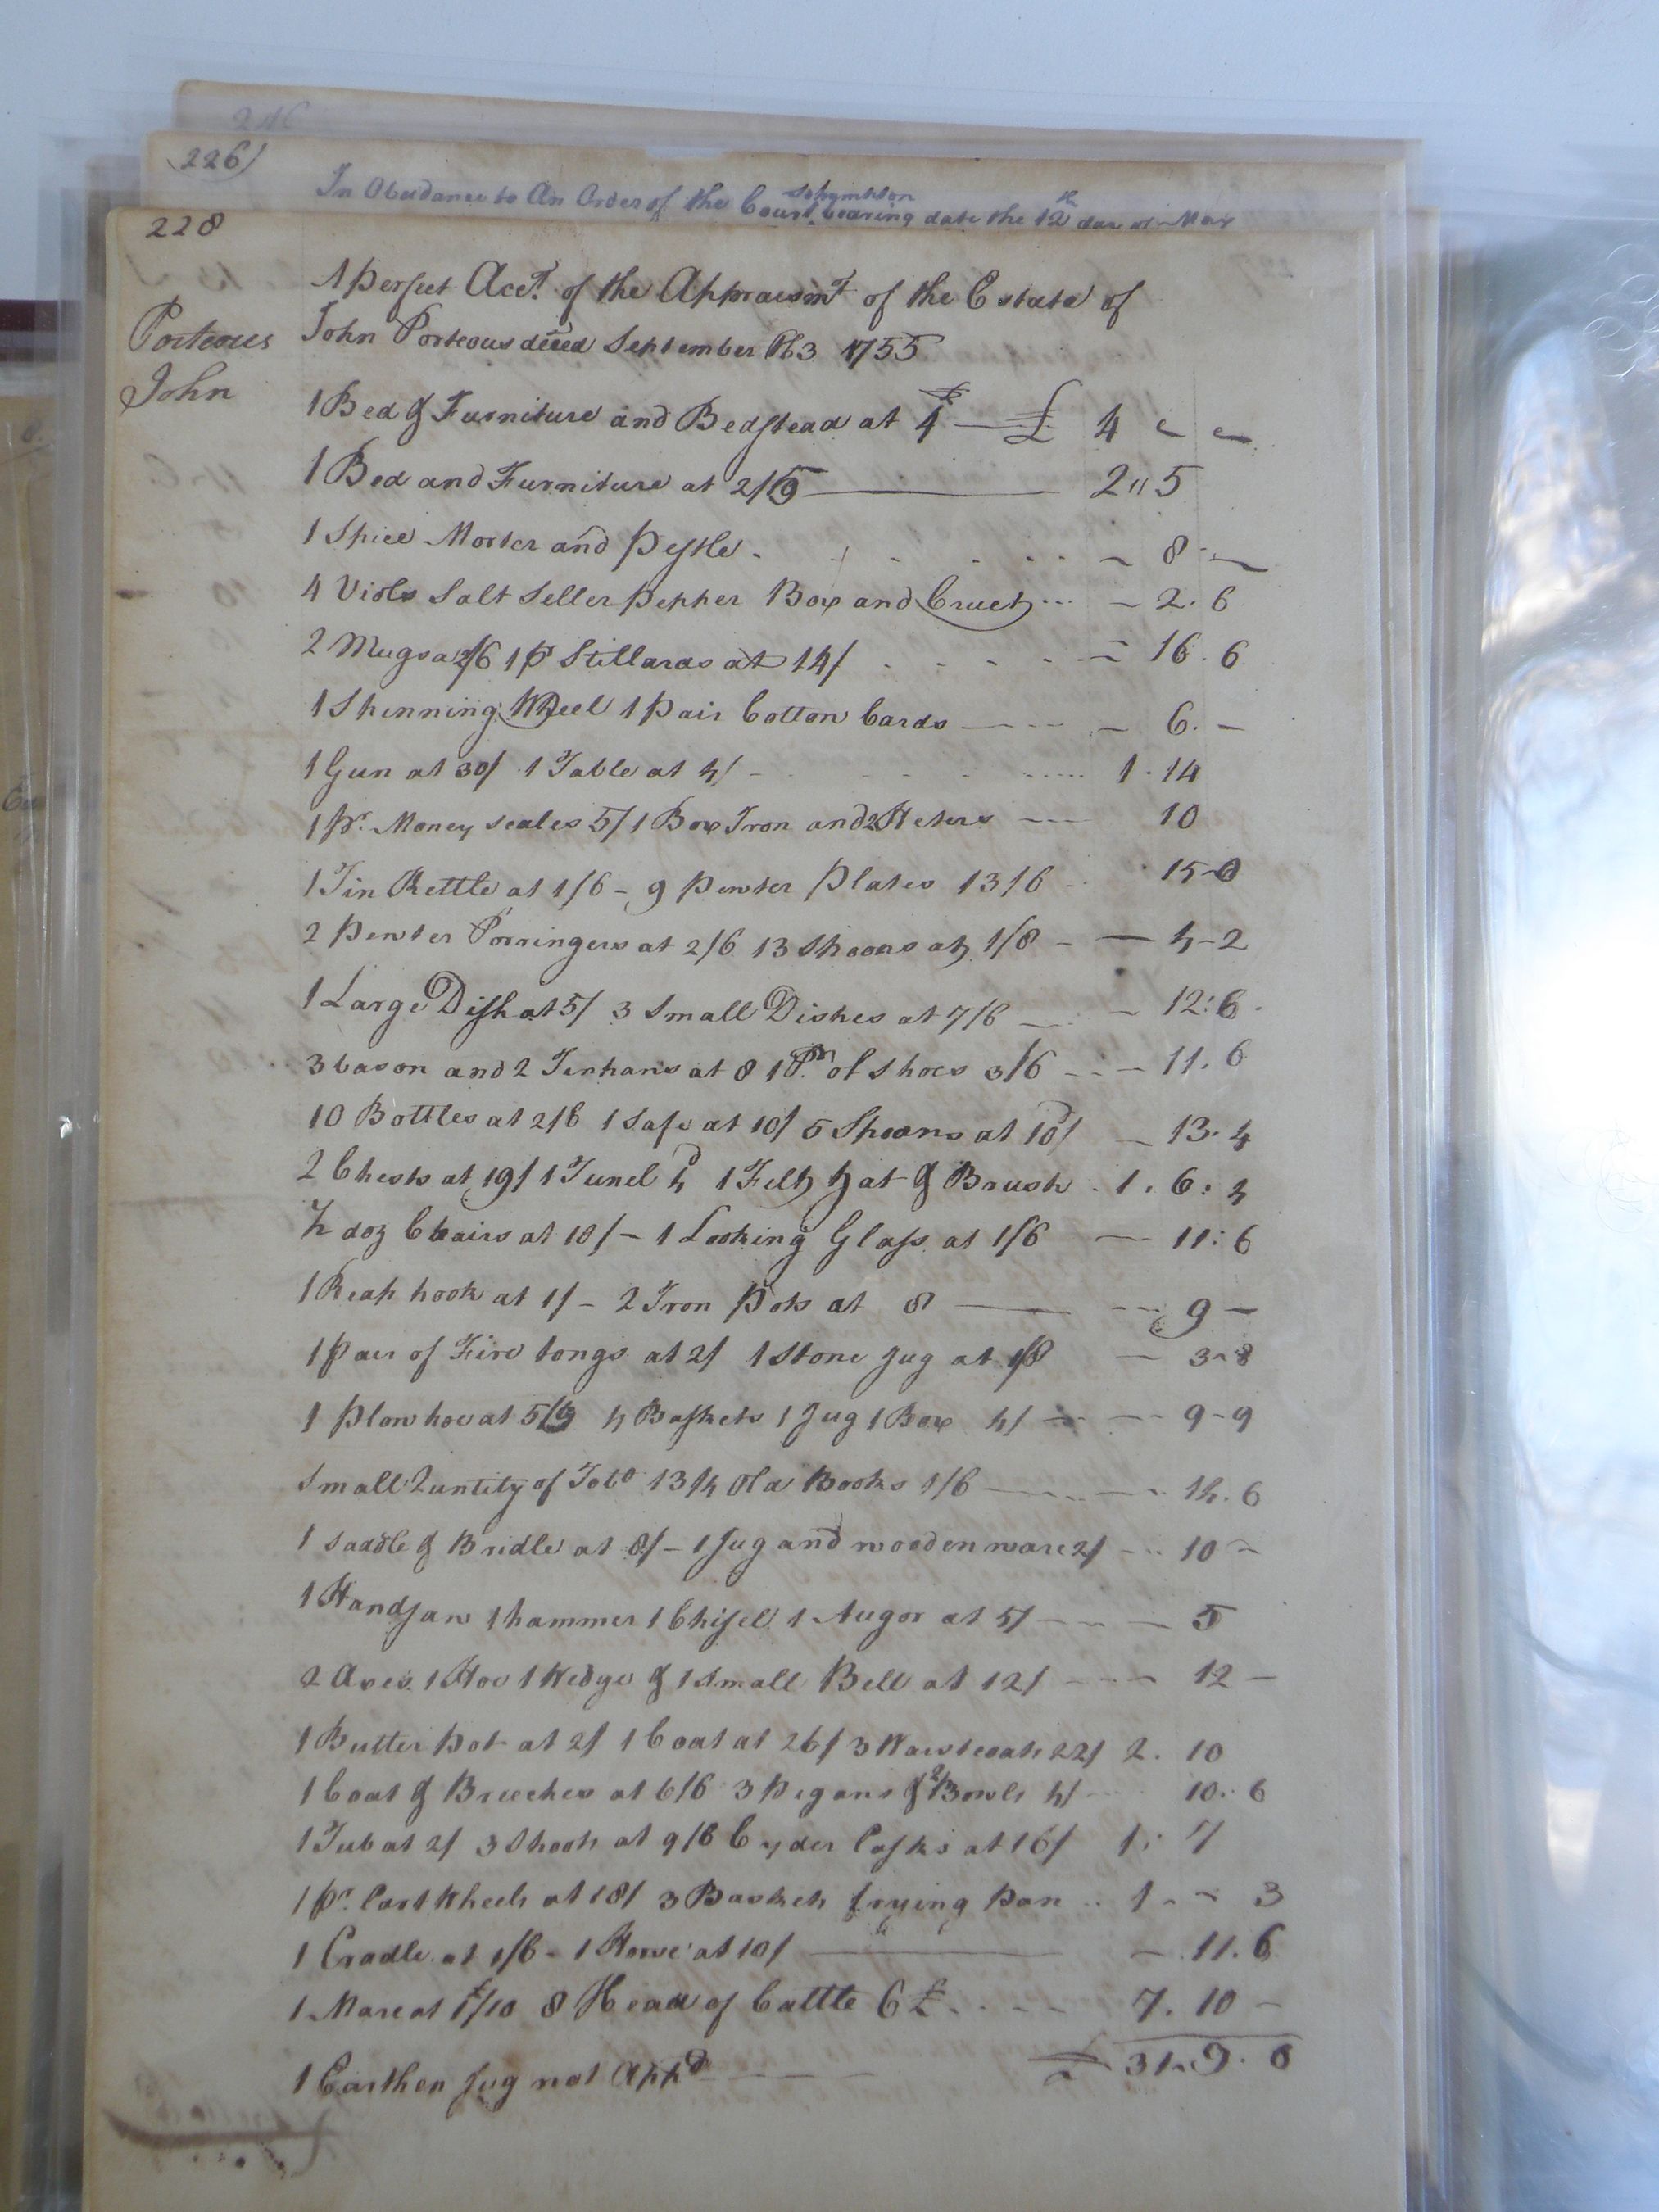 226)
In Obeidance to An Order of the Court bearing date the 12th day of May
228
A Perfect Acct. of the Appraismt of the Estate of
Porteous
John Porteous deced September 1755
John
1 Bed & Furniture and Bedstead at £4 — £ 4 " "
1 Bed and Furniture at 2/5 — 2 " 5
1 Spice Morter and Pestle - 8 -
4 Viols Salt Seller Pepper Box and Cruet - 2. 6
2 Mugs a 2/6 1 pr Stillards at 14/ - 16. 6
1 Spinning Wheel 1 Pair Cotton Cards - 6. -
1 Gun at 30/ 1 Table at 4/ - 1. 14
1 Pr. Money scales 5/ 1 Box Iron and 2 Heters - 10
1 Tin Kettle at 1/6 - 9 Pewter Plates 13/6 15-0
2 Pewter Porringers at 2/6 13 Spoons at 1/8 - 4-2
1 Large Dish at 5/ 3 Small Dishes at 7/6 - 12:6
3 bason and 2 Tinpans at 8 1 Pr. of Shoes 3/6 - 11. 6
10 Bottles at 2/6 1 Safe at 10/ 5 Spoons at 10d/ - 13. 4
2 Chests at 19/ 1 Tunel 4d 1 Felt Hat & Brush 1. 6: 4
½ doz Chairs at 10/ - 1 Looking Glass at 1/6 - 11: 6
1 Reap hook at 1/ - 2 Iron Pots at 8 - 9 -
1 Pair of Fire tongs at 2/ 1 Stone Jug at 1/8 - 3-8
1 Plow hoe at 5/9 4 Baskets 1 Jug 1 Box 4/ - 9-9
Small Quntity of Tobo 13/ Old Books 1/6 - 14. 6
1 Saddle & Bridle at 8/ - 1 Jug and wooden ware 2/ - 10 -
1 Handsaw 1 hammer 1 Chisel 1 Augor at 5/ - 5
2 Axes 1 Hoe 1 Wedge & 1 Small Bell at 12/ - 12 -
1 Butter Pot at 2/ 1 Coat at 26/ 3 Wastcoats 22/ 2. 10
1 Coat & Breeches at 6/6 3 Pigans & 2 Bowls 4/ 10: 6
1 Tub at 2/ 3 at 9/ 6 Cyder Casks at 16/ 1: 7
1 Pr. Cart Wheels at 18/ 3 Baskets frying Pan 1 - - 3
1 Cradle at 1/6 - 1 Horse at 10/ - 11. 6
1 Mare at 1£/10 8 Head of Cattle 6 £ - 7. 10 -
1 Earthen Jug not Appd - £ 31. 9. 8